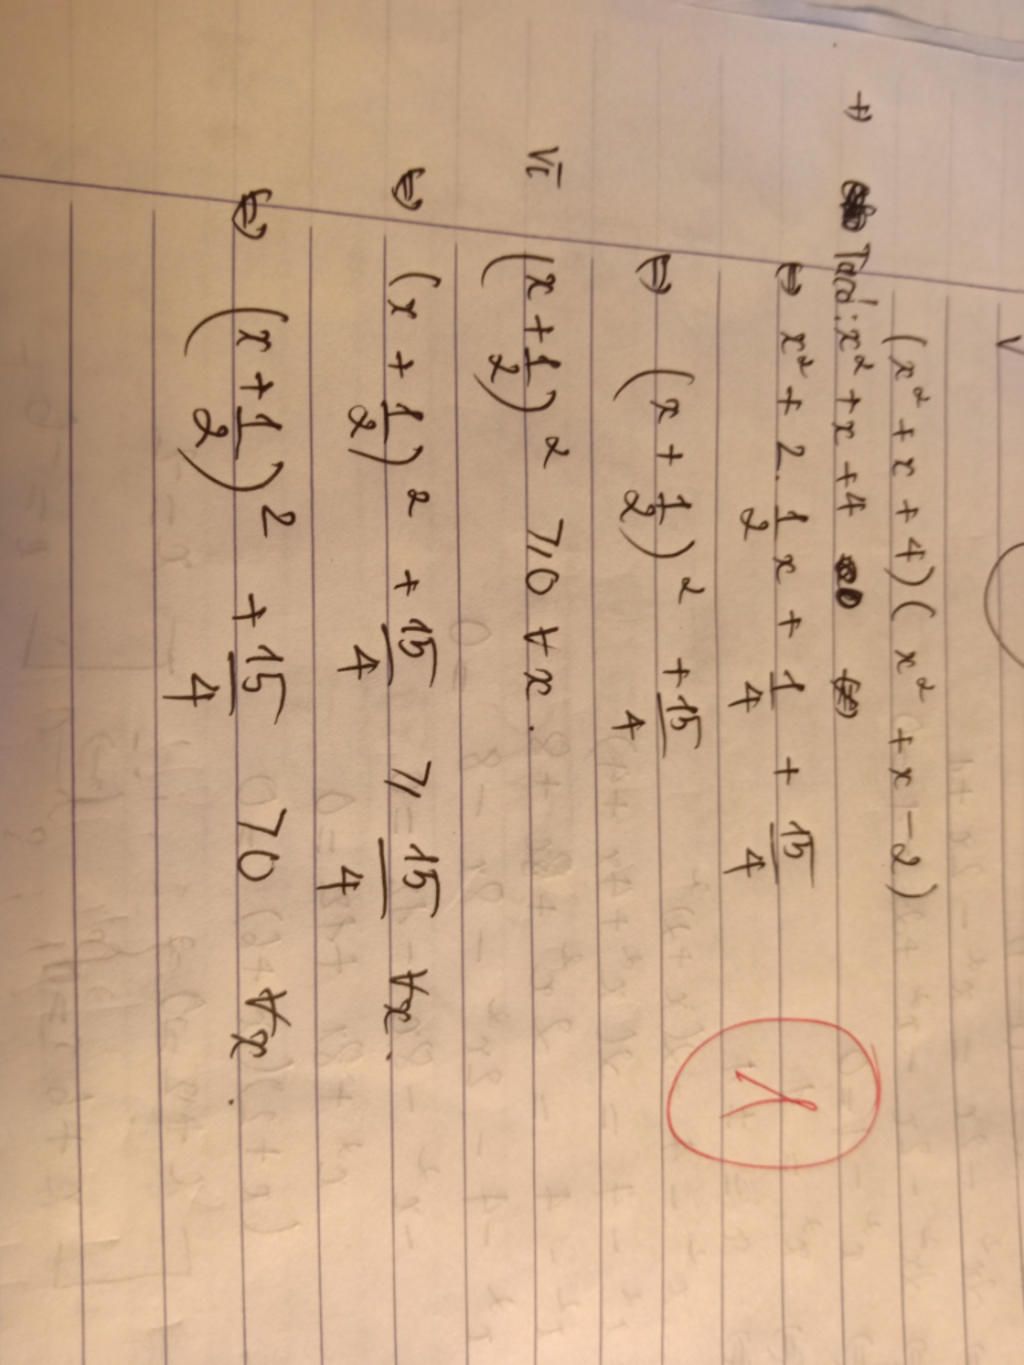 (x² + x + 4)(x² + x - 2)
+) Tacó: x² + x + 4
⇔ x² + 2. 1/2 x + 1/4 + 15/4
⇔ (x + 1/2)² + 15/4
Vì (x + 1/2)² ⩾ 0 ∀x.
⇔ (x + 1/2)² + 15/4 ⩾ 15/4 ∀x.
⇔ (x + 1/2)² + 15/4 > 0 ∀x.